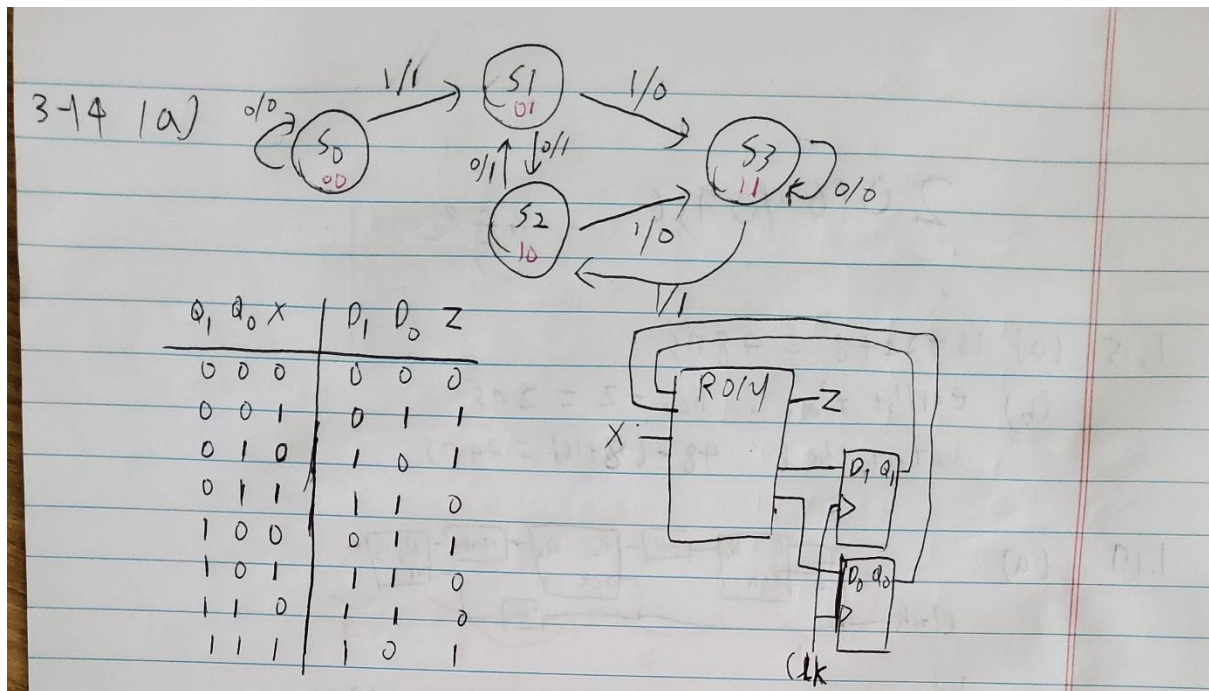 3-14 (a)
0/0
S0
00
1/1
S1
01
1/0
0/1
0/1
S2
10
1/0
S3
11
0/0
1/1
Q1 Q0 X D1 D0 Z
0 0 0 0 0 0
0 0 1 0 1 1
0 1 0 1 0 1
0 1 1 1 1 0
1 0 0 0 1 1
1 0 1 1 1 0
1 1 0 1 1 0
1 1 1 1 0 1
ROM
Z
X
D1 Q1
D0 Q0
Clk